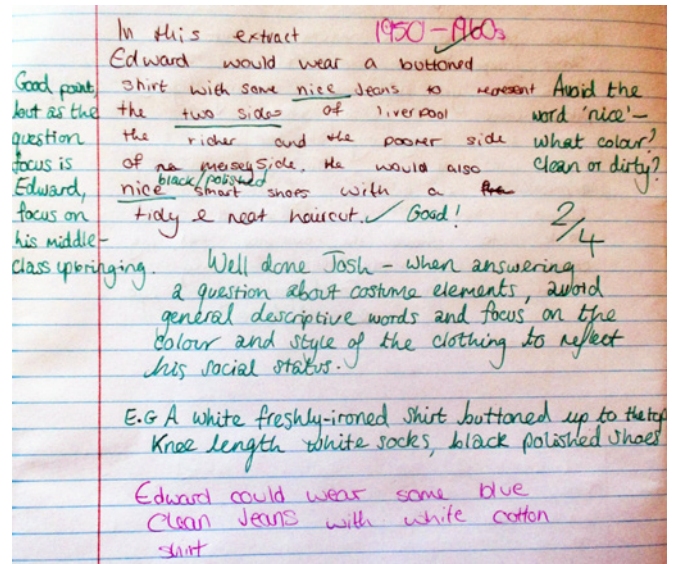 In this extract 1950-1960s
Edward would wear a buttoned
shirt with some nice Jeans to represent
the two sides of liverpool
the richer and the poorer side
of merseyside. He would also
nice black/polished smart shoes with a
tidy & neat haircut. ✓ Good!
Good point,
but as the
question
focus is
Edward,
focus on
his middle-
class upbringing.
Avoid the
word 'nice' –
what colour?
clean or dirty?
2/4
Well done Josh – when answering
a question about costume elements, avoid
general descriptive words and focus on the
colour and style of the clothing to reflect
his social status.
E.G A white freshly-ironed shirt buttoned up to the top
Knee length white socks, black polished shoes
Edward could wear some blue
Clean Jeans with white cotton
shirt